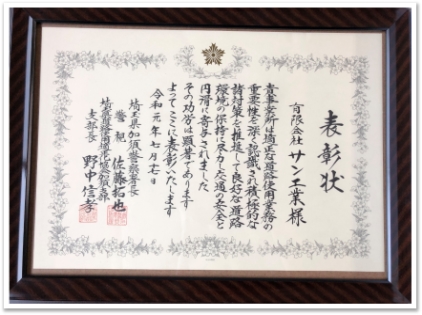 表彰状
有限会社 サン工業様
貴事業所は適正な道路使用業務の
重要性を深く認識され積極的な
諸対策を推進して良好な道路
環境の保持に尽力し交通の安全と
円滑に寄与されました
その功労は顕著であります
よってここに表彰いたします
令和元年七月十七日
埼玉県加須警察署長
警視 佐藤拓也
支部長 野中信孝